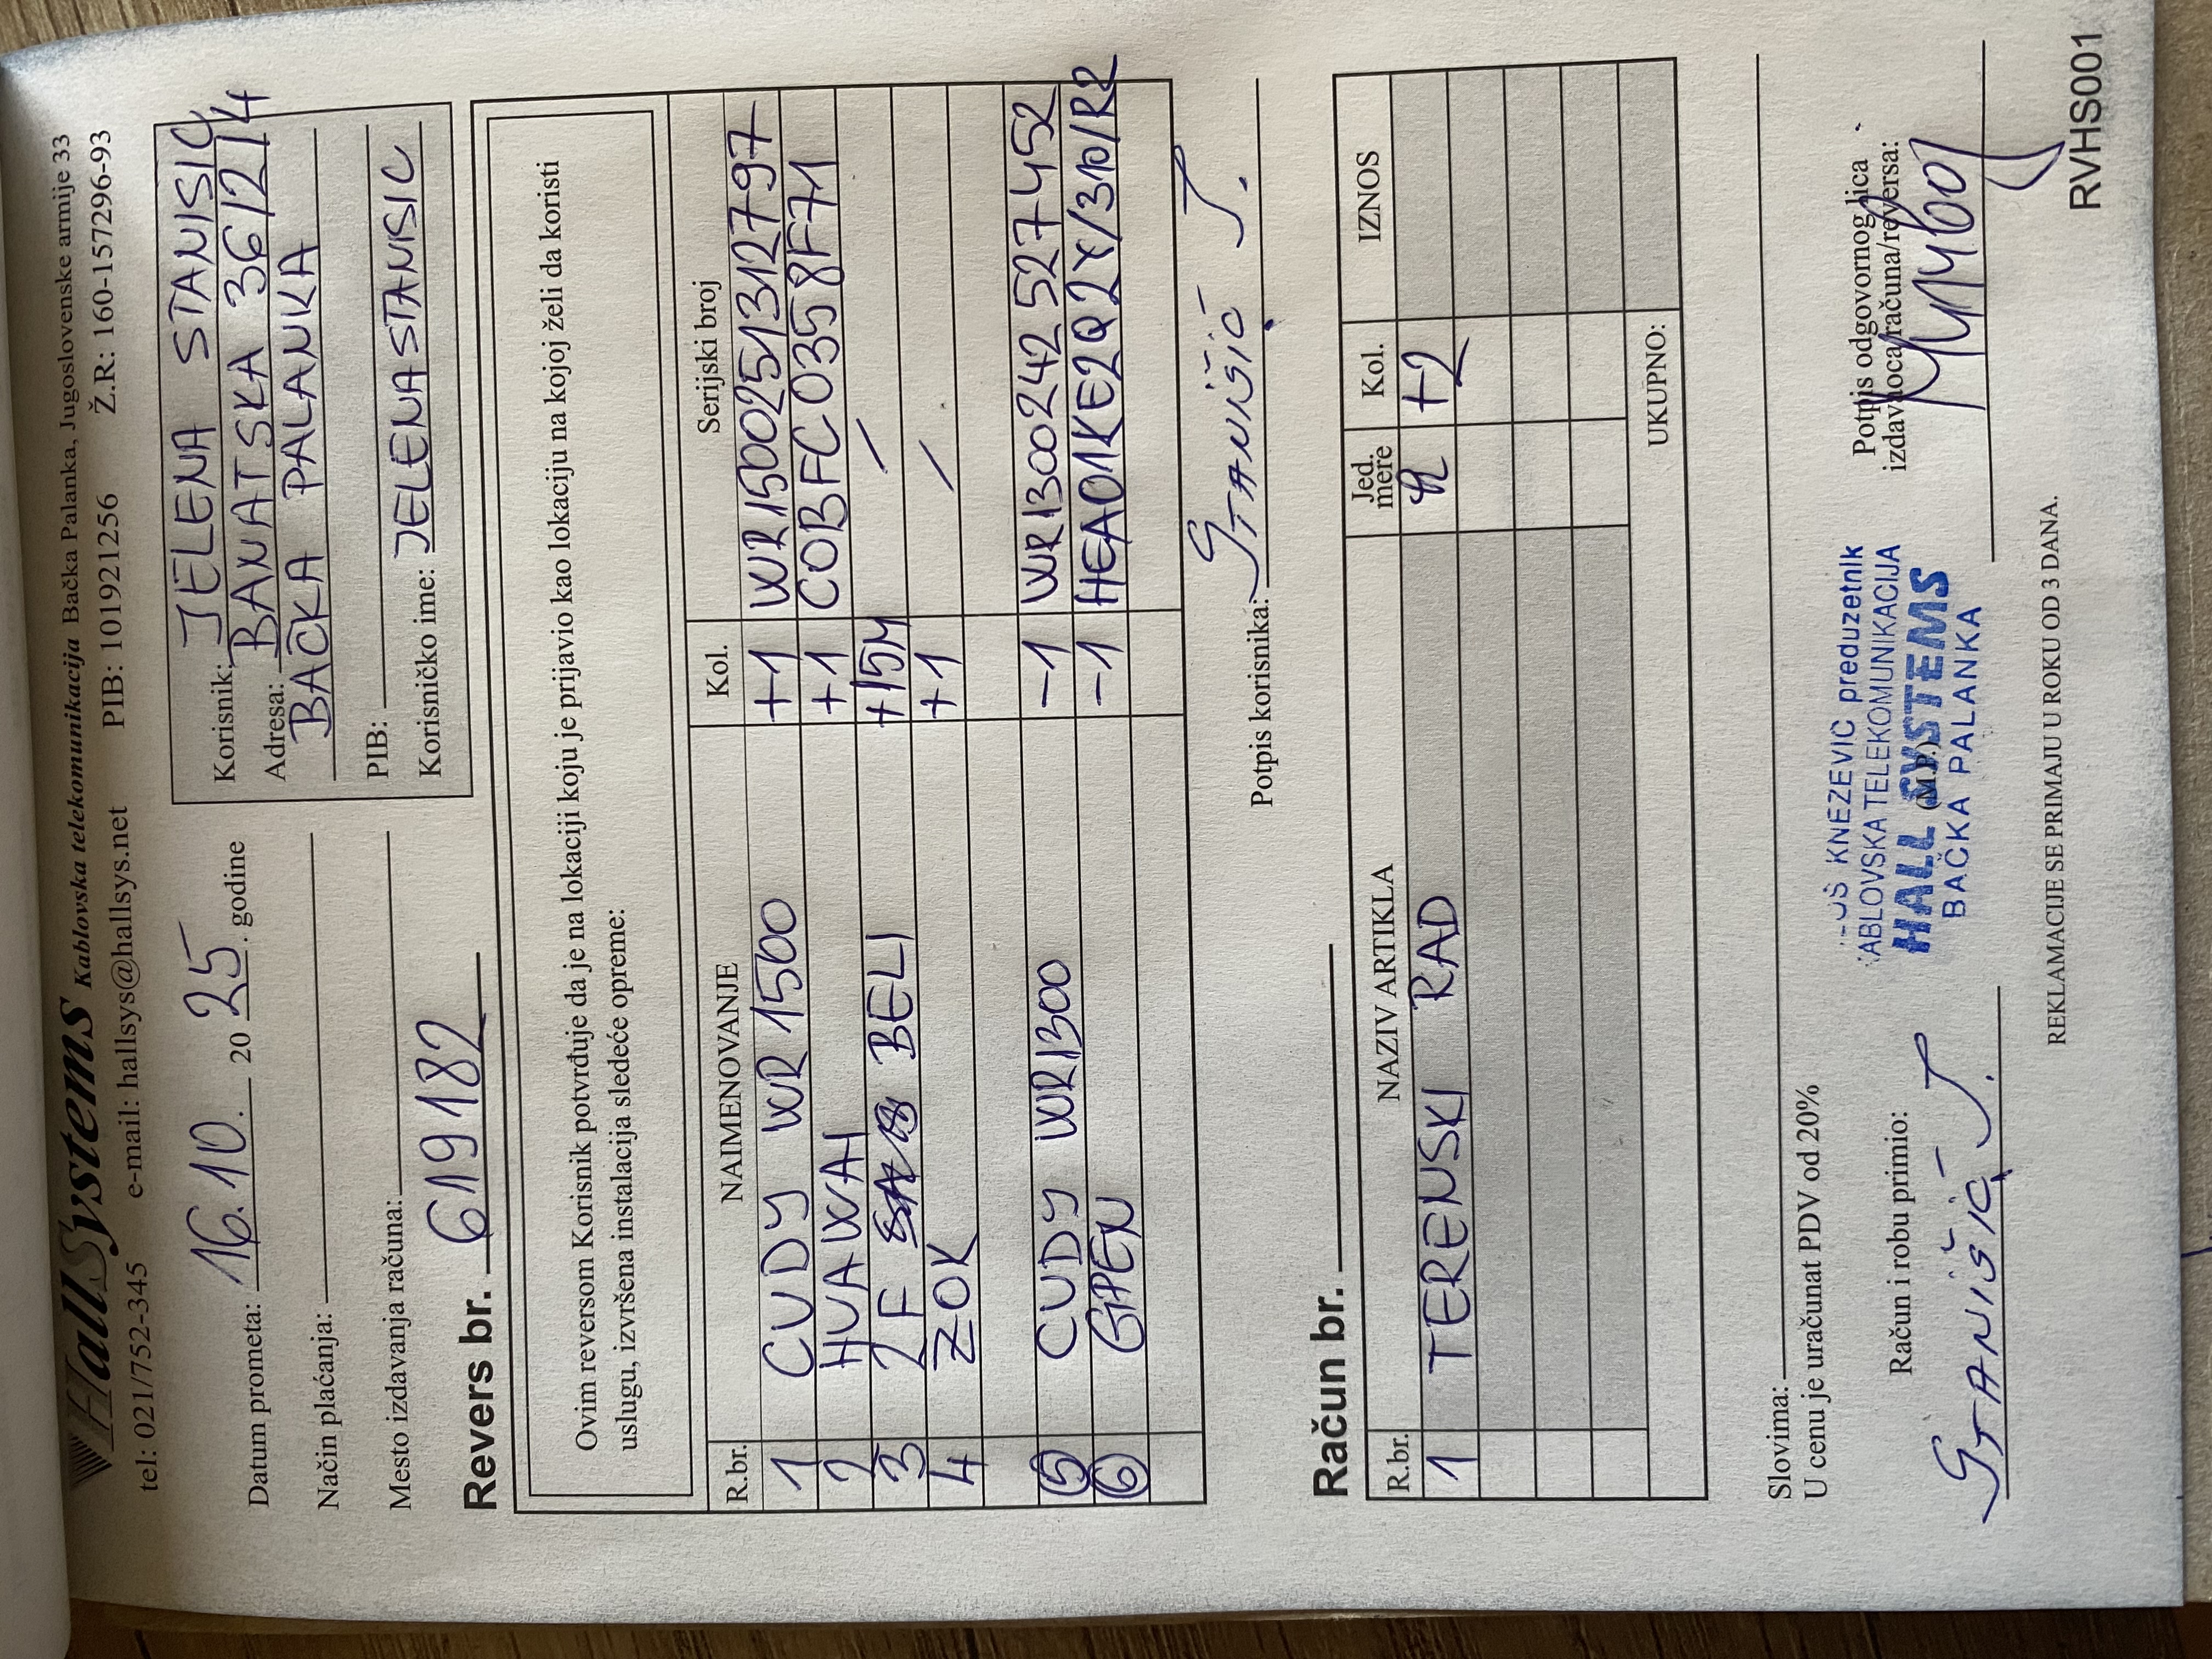 HallSystems Kablovska telekomunikacija Bačka Palanka, Jugoslovenske armije 33
tel: 021/752-345 e-mail: hallsys@hallsys.net PIB: 101921256 Ž.R: 160-157296-93
Datum prometa: 16.10. 20 25. godine
Način plaćanja:
Mesto izdavanja računa:
Korisnik: JELENA STANISIC
Adresa: BANATSKA 36/2/4
BAČKA PALANKA
PIB:
Korisničko ime: JELENASTANISIC
Revers br. 619182
Ovim reversom Korisnik potvrđuje da je na lokaciji koju je prijavio kao lokaciju na kojoj želi da koristi
uslugu, izvršena instalacija sledeće opreme:
R.br. NAIMENOVANJE Kol. Serijski broj
1 CUDY WR 1500 +1 WR1500251312797
2 HUAWAI +1 C0BFC0358F71
3 2F BELI +15M /
4 ZOK +1 /
5 CUDY WR1300 -1 WR1300242527452
6 GPEN -1 HEA01KE2Q2Y/310/R2
Potpis korisnika: STANIŠIĆ J.
Račun br.
R.br. NAZIV ARTIKLA Jed. mere Kol. IZNOS
1 TERENSKI RAD +2
UKUPNO:
Slovima:
U cenu je uračunat PDV od 20%
Račun i robu primio:
STANIŠIĆ J.
KNEZEVIC preduzetnik
ABLOVSKA TELEKOMUNIKACIJA
HALL SYSTEMS
(M.P.)
BAČKA PALANKA
Potpis odgovornog lica
izdavaoca računa/reversa:
REKLAMACIJE SE PRIMAJU U ROKU OD 3 DANA.
RVHS001